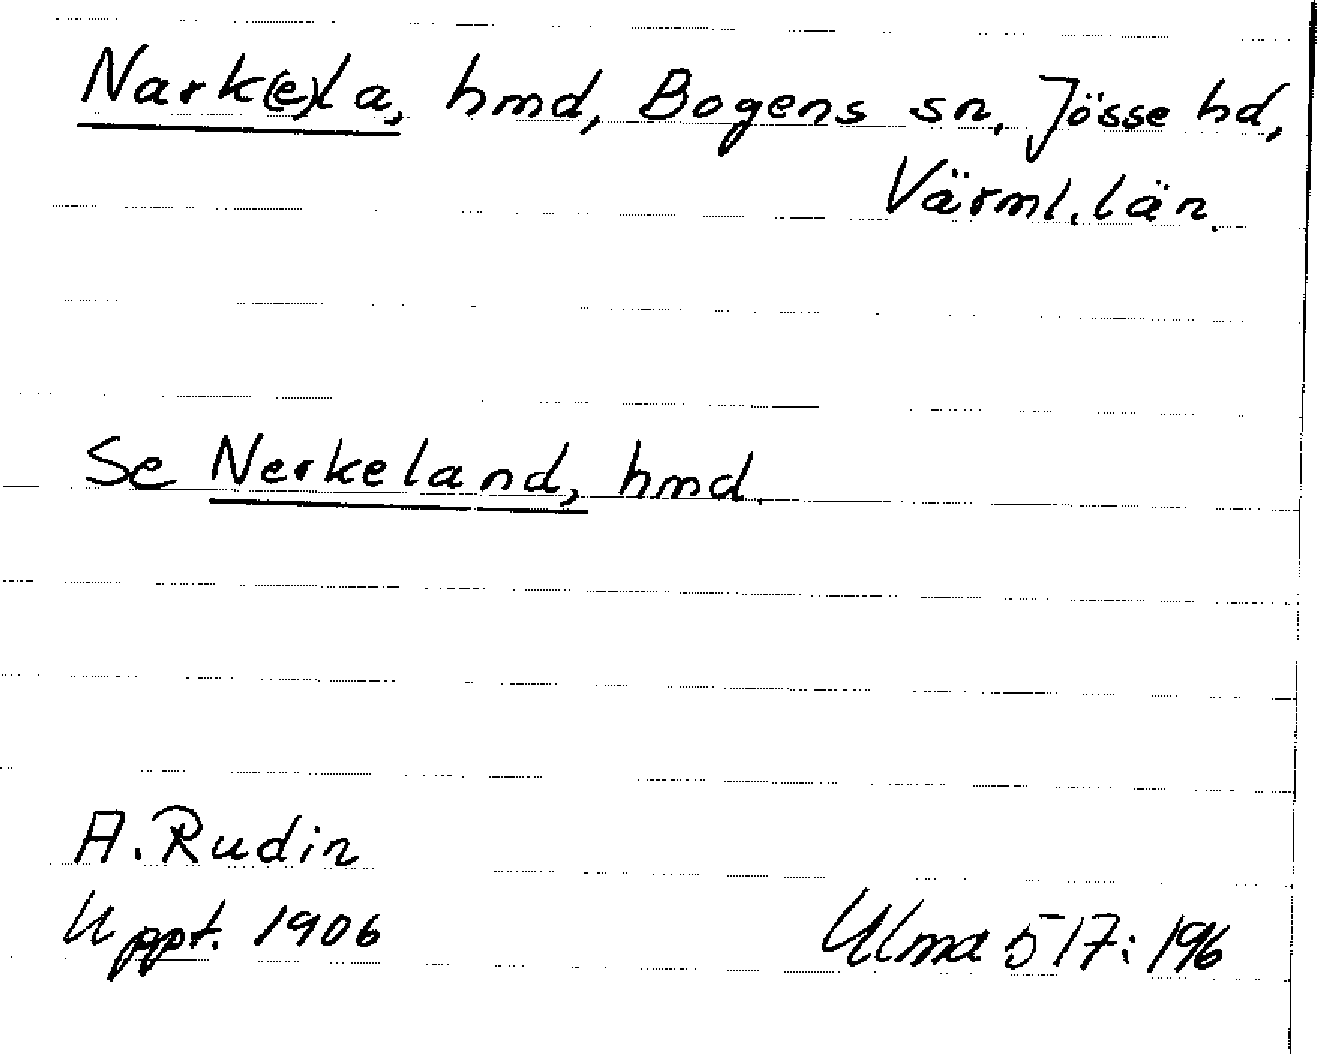 Nark(e)la, hmd, Bogens sn, Jösse hd,
Värml. län.
Se Nerkeland, hmd.
A. Rudin
Uppt. 1906
Ulma 517:196